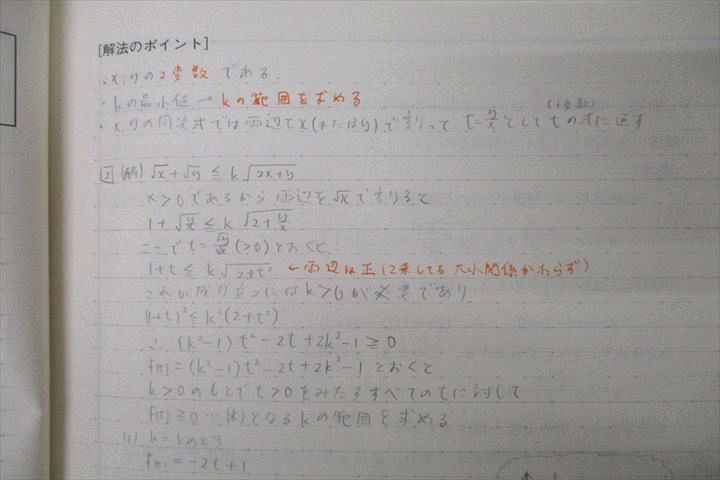 [解法のポイント]
・x,yの2変数である.
・kの最小値→kの範囲を求める
・x,yの同次式では両辺でx(またはy)で割って t=y/xとしてtの式に直す
(1変数)
[2](解) √x+√y≦k√(2x+y)
x>0であるから両辺を√xで割ると
1+√(y/x)≦k√(2+y/x)
ここでt=√y/√x(>0)とおくと
1+t≦k√(2+t²) ←両辺は正(2乗しても大小関係かわらず)
これが成り立つにはk>0が必要であり
(1+t)²≦k²(2+t²)
∴(k²-1)t²-2t+2k²-1≧0
f(t)=(k²-1)t²-2t+2k²-1とおくと
k>0のもとでt>0をみたすすべてのtに対して
f(t)≧0…(*)となるkの範囲を求める
(i) k=1のとき
f(t)=-2t+1